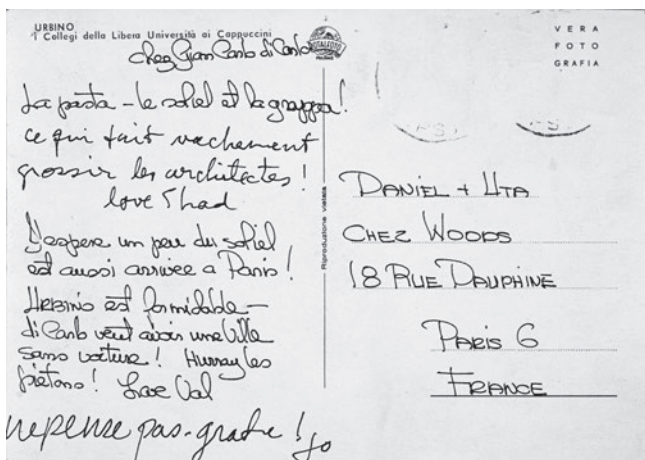 URBINO
I Collegi della Libera Università ai Cappuccini
chez Gian Carlo di Carlo
La pasta – le soleil et la grappa!
ce qui fait vachement
grossir les architectes!
love Shad
J'espere un peu du soleil
est aussi arrivée a Paris!
Urbino est formidable –
di Carlo veut avoir une Ville
sans voiture! Hurray les
pietons! Love Val
pas-gratte! Jo
Riproduzione vietata
VERA
FOTO
GRAFIA
DANIEL + UTA
CHEZ WOODS
18 RUE DAUPHINE
PARIS 6
FRANCE